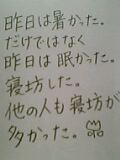 昨日は暑かった。
だけではなく
昨日は眠かった。
寝坊した。
他の人も寝坊が
多かった。